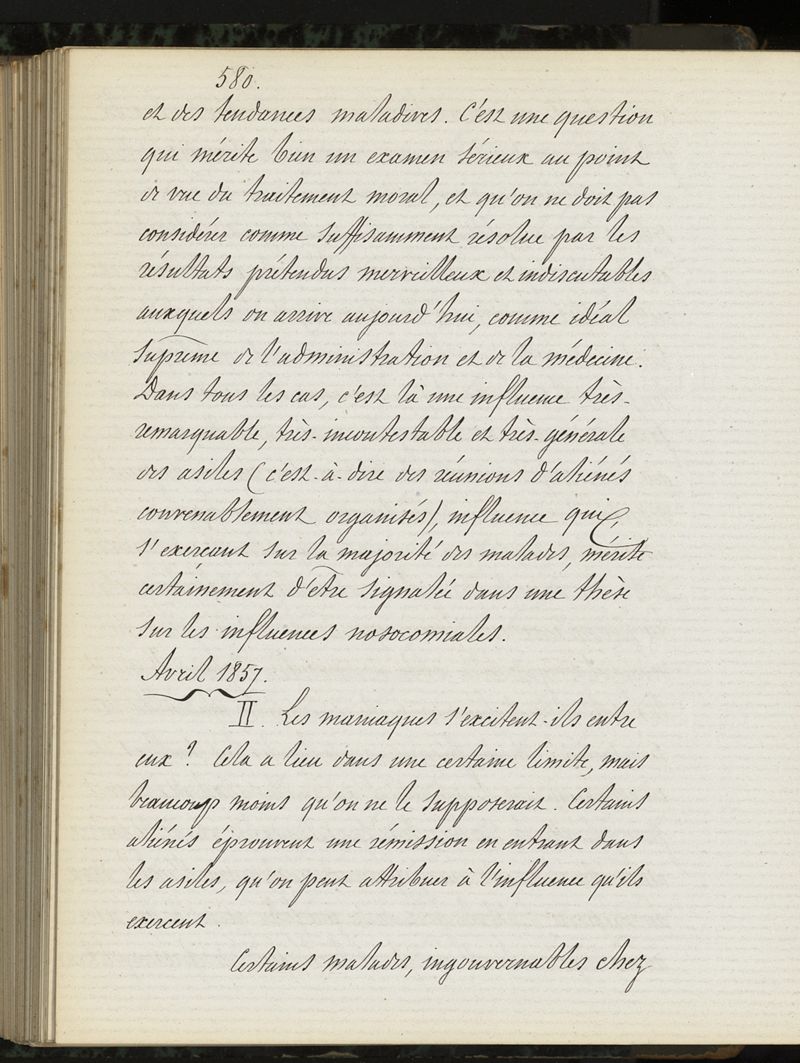 580.
et des tendances maladives. C'est une question
qui mérite bien un examen sérieux au point
de vue du traitement moral, et qu'on ne doit pas
considérer comme suffisamment résolue par les
résultats prétendus merveilleux et indiscutables
auxquels on arrive aujourd'hui, comme idéal
suprême de l'administration et de la médecine.
Dans tous les cas, c'est là une influence très-
remarquable, très-incontestable et très-générale
des asiles (c'est-à-dire des réunions d'aliénés
convenablement organisés), influence qui,
s'exerçant sur la majorité des malades, mérite
certainement d'être signalée dans une thèse
sur les influences nosocomiales.
Avril 1857.
II. Les maniaques s'excitent-ils entre
eux? Cela a lieu dans une certaine limite, mais
beaucoup moins qu'on ne le supposerait. Certains
aliénés éprouvent une rémission en entrant dans
les asiles, qu'on peut attribuer à l'influence qu'ils
exercent.
Certains malades, ingouvernables chez